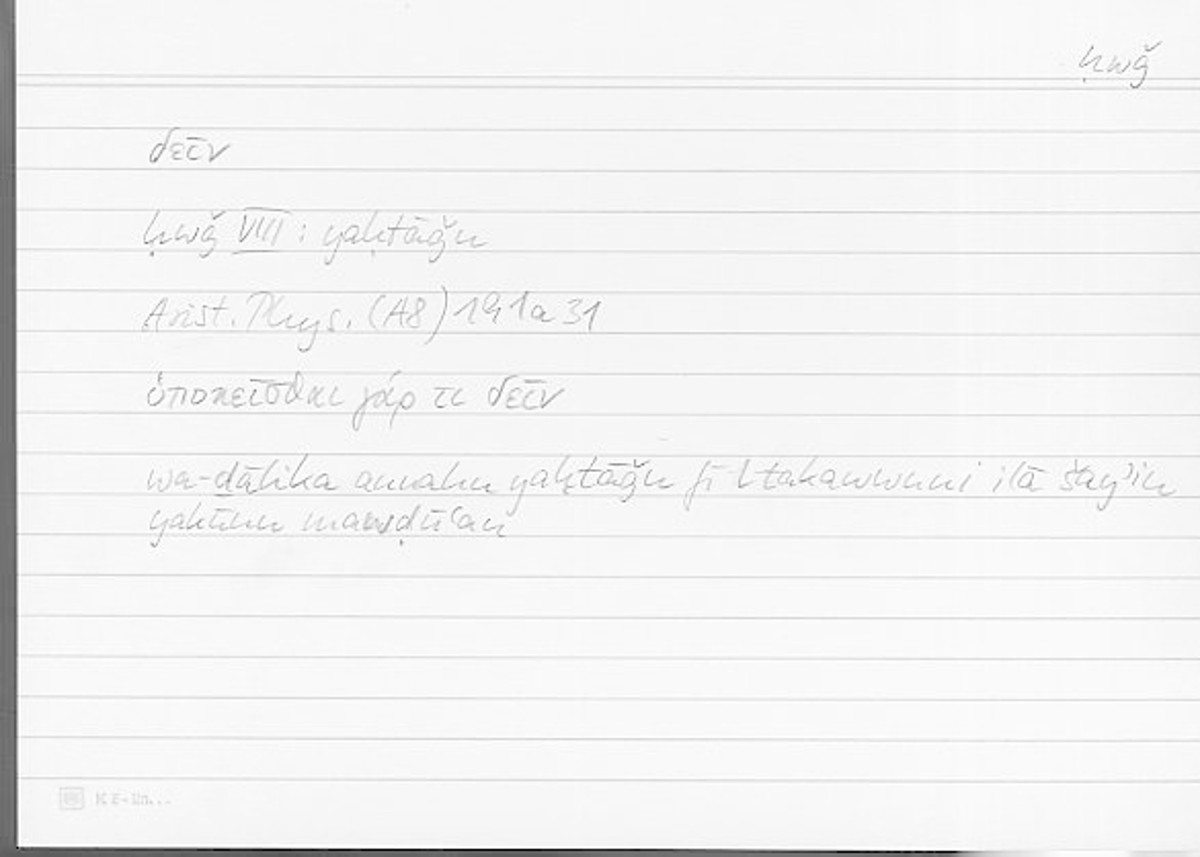 ḥwǧ
δεῖν
ḥwǧ VIII : yaḥtāǧu
Arist. Phys. (A8) 191a 31
ὑποκεῖσθαι γάρ τι δεῖν
wa-ḏālika annahu yaḥtāǧu fī l-takawwuni ilā šayʾin
yakūnu mawḍūʿan